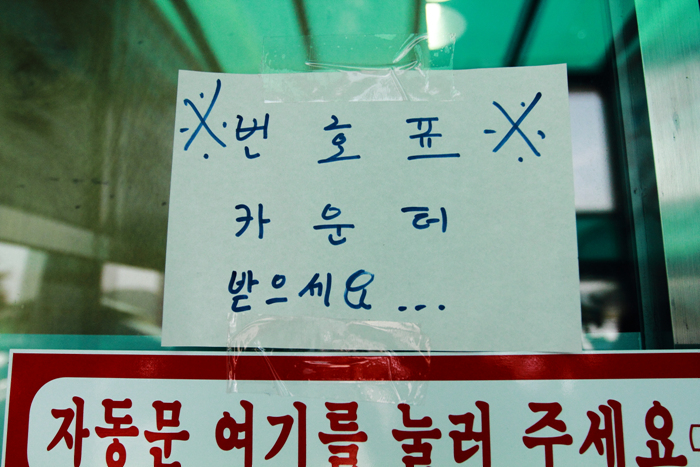 ※번 호 표※
카 운 터
받으세요...
자동문 여기를 눌러 주세요